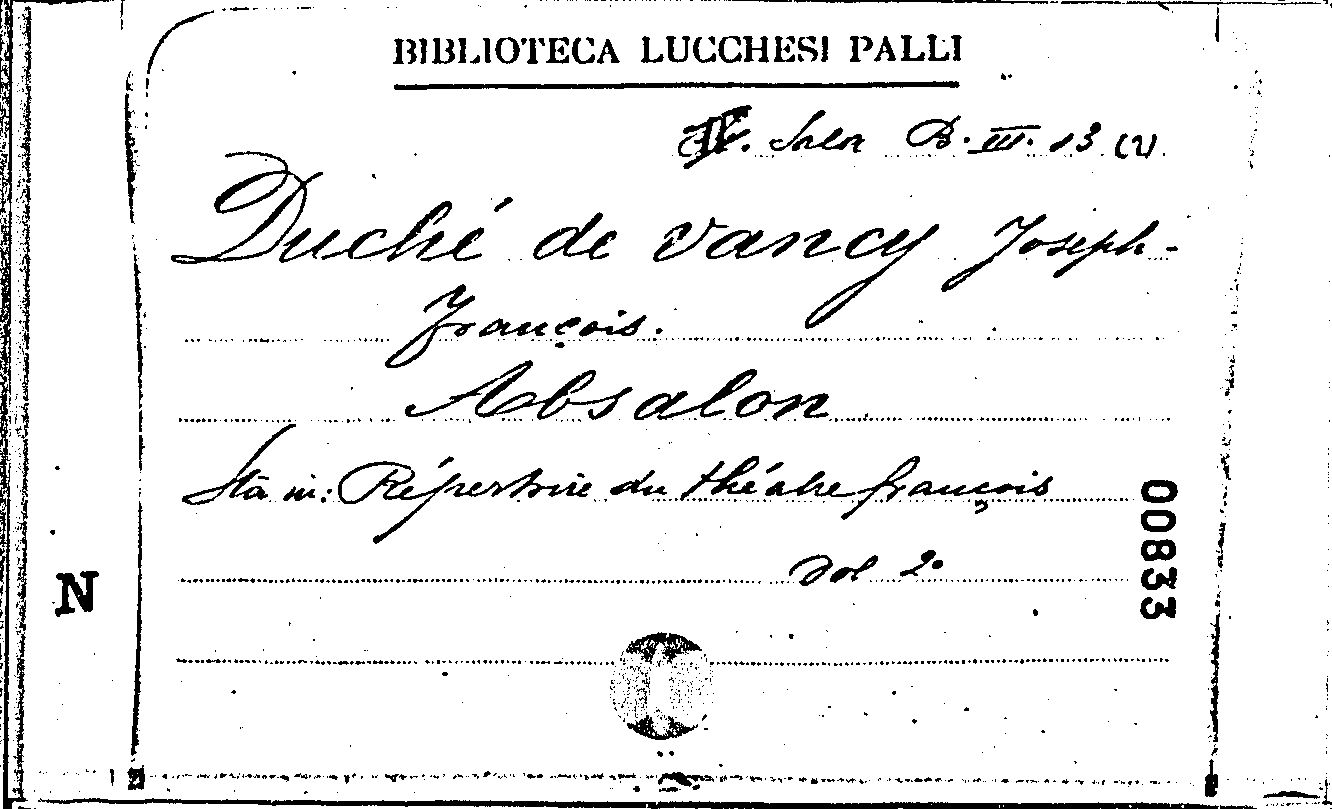 BIBLIOTECA LUCCHESI PALLI
Sala B. III. 13 (2)
Duché de Vancy Joseph-
François.
Absalon
Sta in: Répertoire du théatre françois
Vol 2º
00833
N